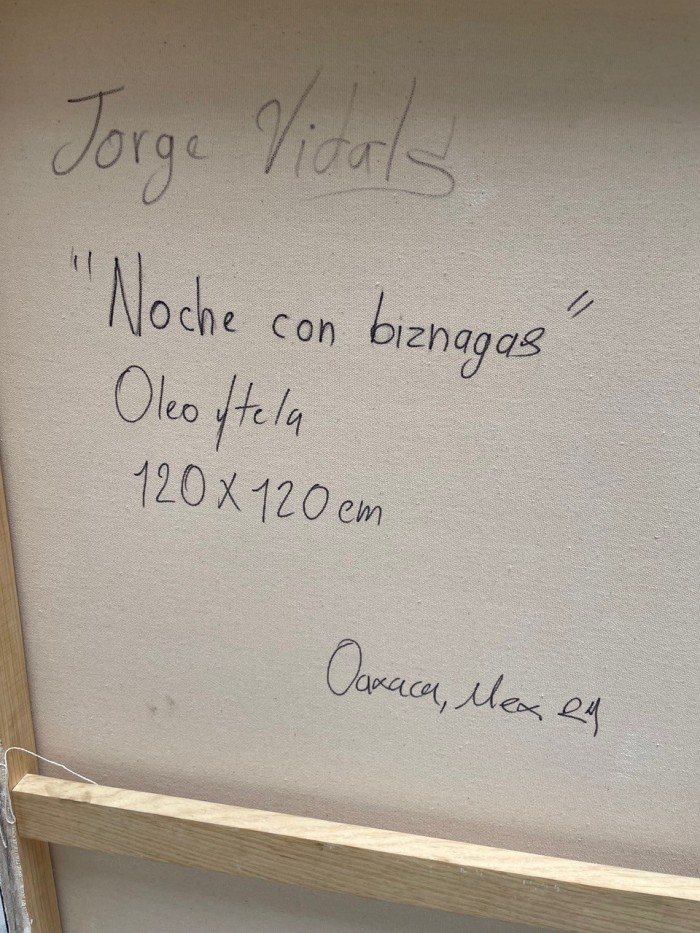 Jorge Vidals
"Noche con biznagas"
Oleo s/tela
120 x 120 cm
Oaxaca, Mex